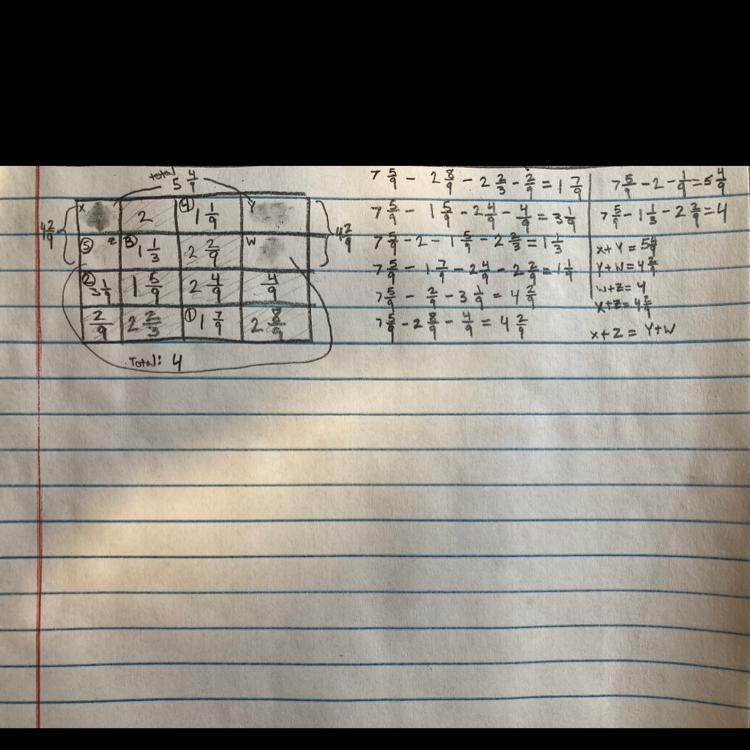 total
5 4/9
x 2 ④ 1 1/9 Y
4 2/9 4 2/9
⑤ z ③ 1 1/3 2 2/9 W
② 3 1/9 1 5/9 2 4/9 4/9
2/9 2 2/3 ① 1 7/9 2 8/9
Total: 4
7 5/9 - 2 8/9 - 2 2/3 - 2/9 = 1 7/9
7 5/9 - 1 5/9 - 2 4/9 - 4/9 = 3 1/9
7 5/9 - 2 - 1 5/9 - 2 2/3 = 1 1/3
7 5/9 - 1 7/9 - 2 4/9 - 2 2/9 = 1 1/9
7 5/9 - 2/9 - 3 1/9 = 4 2/9
7 5/9 - 2 8/9 - 4/9 = 4 2/9
7 5/9 - 2 - 1/9 = 5 4/9
7 5/9 - 1 1/3 - 2 2/9 = 4
x + Y = 5 4/9
Y + W = 4 2/9
W + Z = 4
x + Z = 4 2/9
x + Z = Y + W